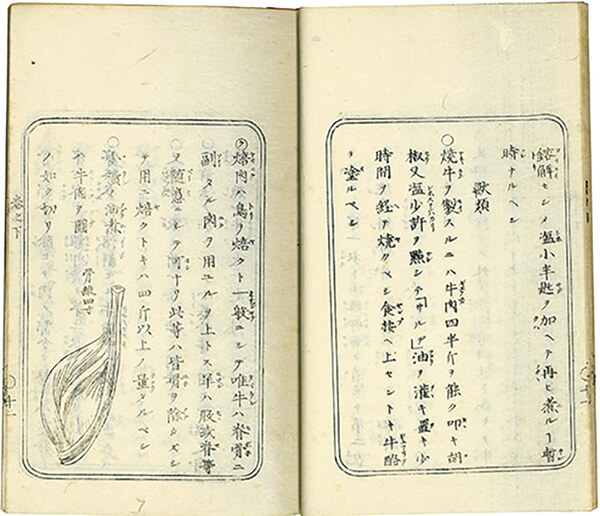 鎔解セシメ塩小半匙ヲ加ヘテ再ヒ煮ルー暫
時ナルヘシ
獣類
〇焼牛ヲ製スルニハ牛肉四半斤ヲ能ク叩キ胡
椒又塩少許ヲ點シ油ヲ灌キ置キ少
時間ヲ経テ焼クベシ食 ヘ上セントキ牛酪
ヲ塗ルベシ
〇焙肉ハ鳥ノ焙クト一般ニシテ唯牛ハ脊骨ニ
副タル肉ヲ用ユルヲ上トス羊ハ股或脊等
又随意ニシテ何ナリ此等ハ皆骨ヲ除シズシ
テ用ニ焙クトキハ四斤以上ノ量タルベシ
〇油煮
牛肉ヲ圖
ノ如ク切リ
骨 四寸
巻之下
〇十一